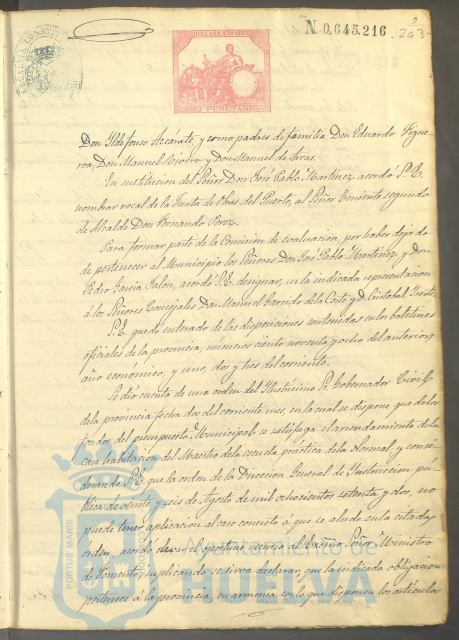 N 0.645.216
203
2 PESETAS
Don Ildefonso Azcárate, y como padres de familia Don Eduardo Figue-
roa, Don Manuel Rivero y Don Manuel de Aras.
En sustitucion del Señor Don José Pablo Martinez, acordó S.E.
nombrar vocal de la Junta de Obras del Puerto, al Señor Teniente segundo
de Alcalde Don Fernando Perez.
Para formar parte de la Comision de evaluacion, por haber dejado
de pertenecer al Municipio los Señores Don José Pablo Martinez, y Don
Pedro Garcia Jalon, acordó S.E. designar, en la indicada representacion
á los Señores Concejales Don Manuel Garrido de la Corte y D. Cristobal
S.E. quedó enterado de las disposiciones contenidas en los boletines
oficiales de la provincia, números ciento noventa y ocho del anterior
año económico, y uno, dos y tres del corriente.
Se dió cuenta de una orden del Ilustrísimo Sr. Gobernador Civil
de la provincia fecha dos del corriente mes, en la cual se dispone que de los
fondos del presupuesto Municipal se satisfaga el arrendamiento de la
casa habitacion del Maestro de la escuela práctica de la Normal, y consi-
derando S.E. que la orden de la Direccion General de Instruccion pú-
blica de veinte y seis de Agosto de mil ochocientos setenta y dos, no
puede tener aplicacion al caso concreto á que se alude en la citada
orden, acordó elevar el oportuno recurso al Excmo. Señor Ministro
de Fomento, suplicando se sirva declarar que la indicada obligacion
pertenece á la provincia, en armonía con lo que disponen los artículos
Ayuntamiento de
HUELVA
PORTUS MARIS